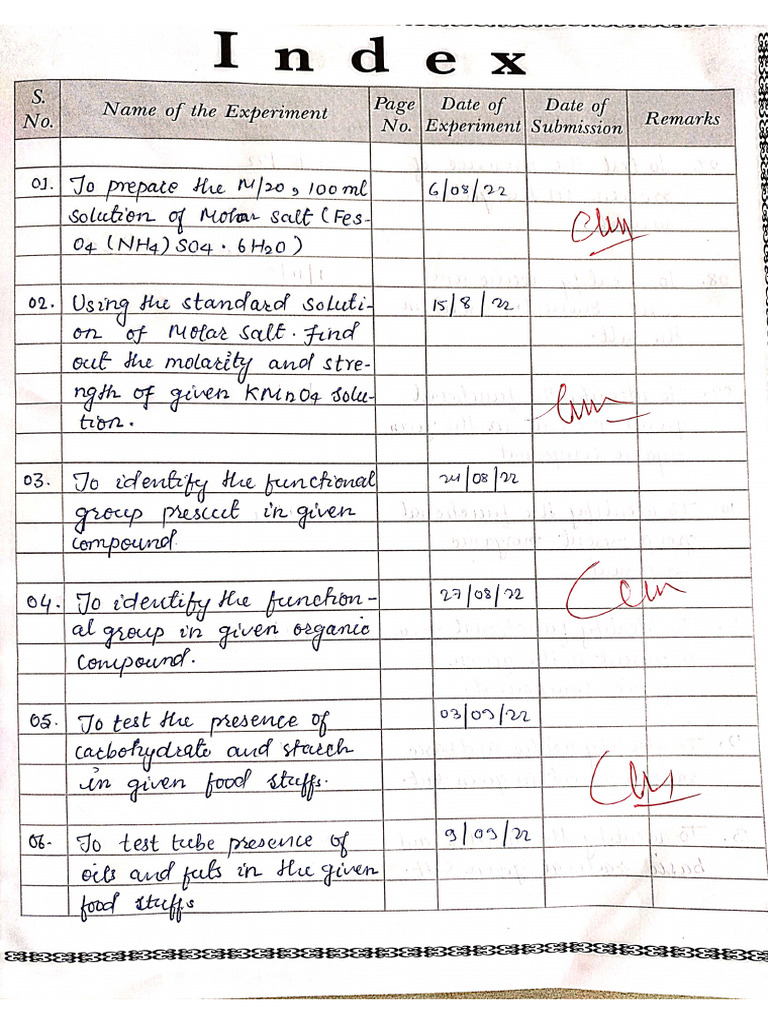 Index
S. No. Name of the Experiment Page No. Date of Experiment Date of Submission Remarks
01. To prepare the M/20, 100 ml 6/08/22
solution of Molar salt (Fes-
O4 (NH4) SO4 . 6H2O)
02. Using the standard soluti- 15/8/22
on of Molar salt. find
out the molarity and stre-
ngth of given KMnO4 solu-
tion.
03. To identify the functional 24/08/22
group present in given
compound.
04. To identify the function- 27/08/22
al group in given organic
compound.
05. To test the presence of 03/09/22
carbohydrate and starch
in given food stuffs.
06. To test tube presence of 9/09/22
oils and fats in the given
food stuffs